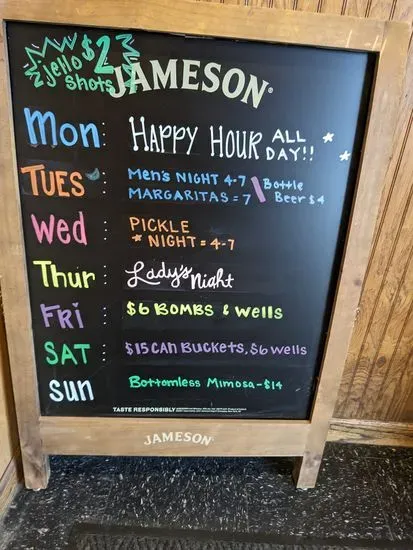 $2
Jello
Shots
JAMESON®
Mon: HAPPY HOUR ALL DAY!!
TUES: Men's NIGHT 4-7 \ Bottle
MARGARITAS = 7 \ Beer $4
Wed: PICKLE
* NIGHT = 4-7
Thur: Lady's Night
FRi: $6 BOMBS & Wells
SAT: $15 CAN BUCKETS, $6 Wells
Sun: Bottomless Mimosa - $14
TASTE RESPONSIBLY
JAMESON®